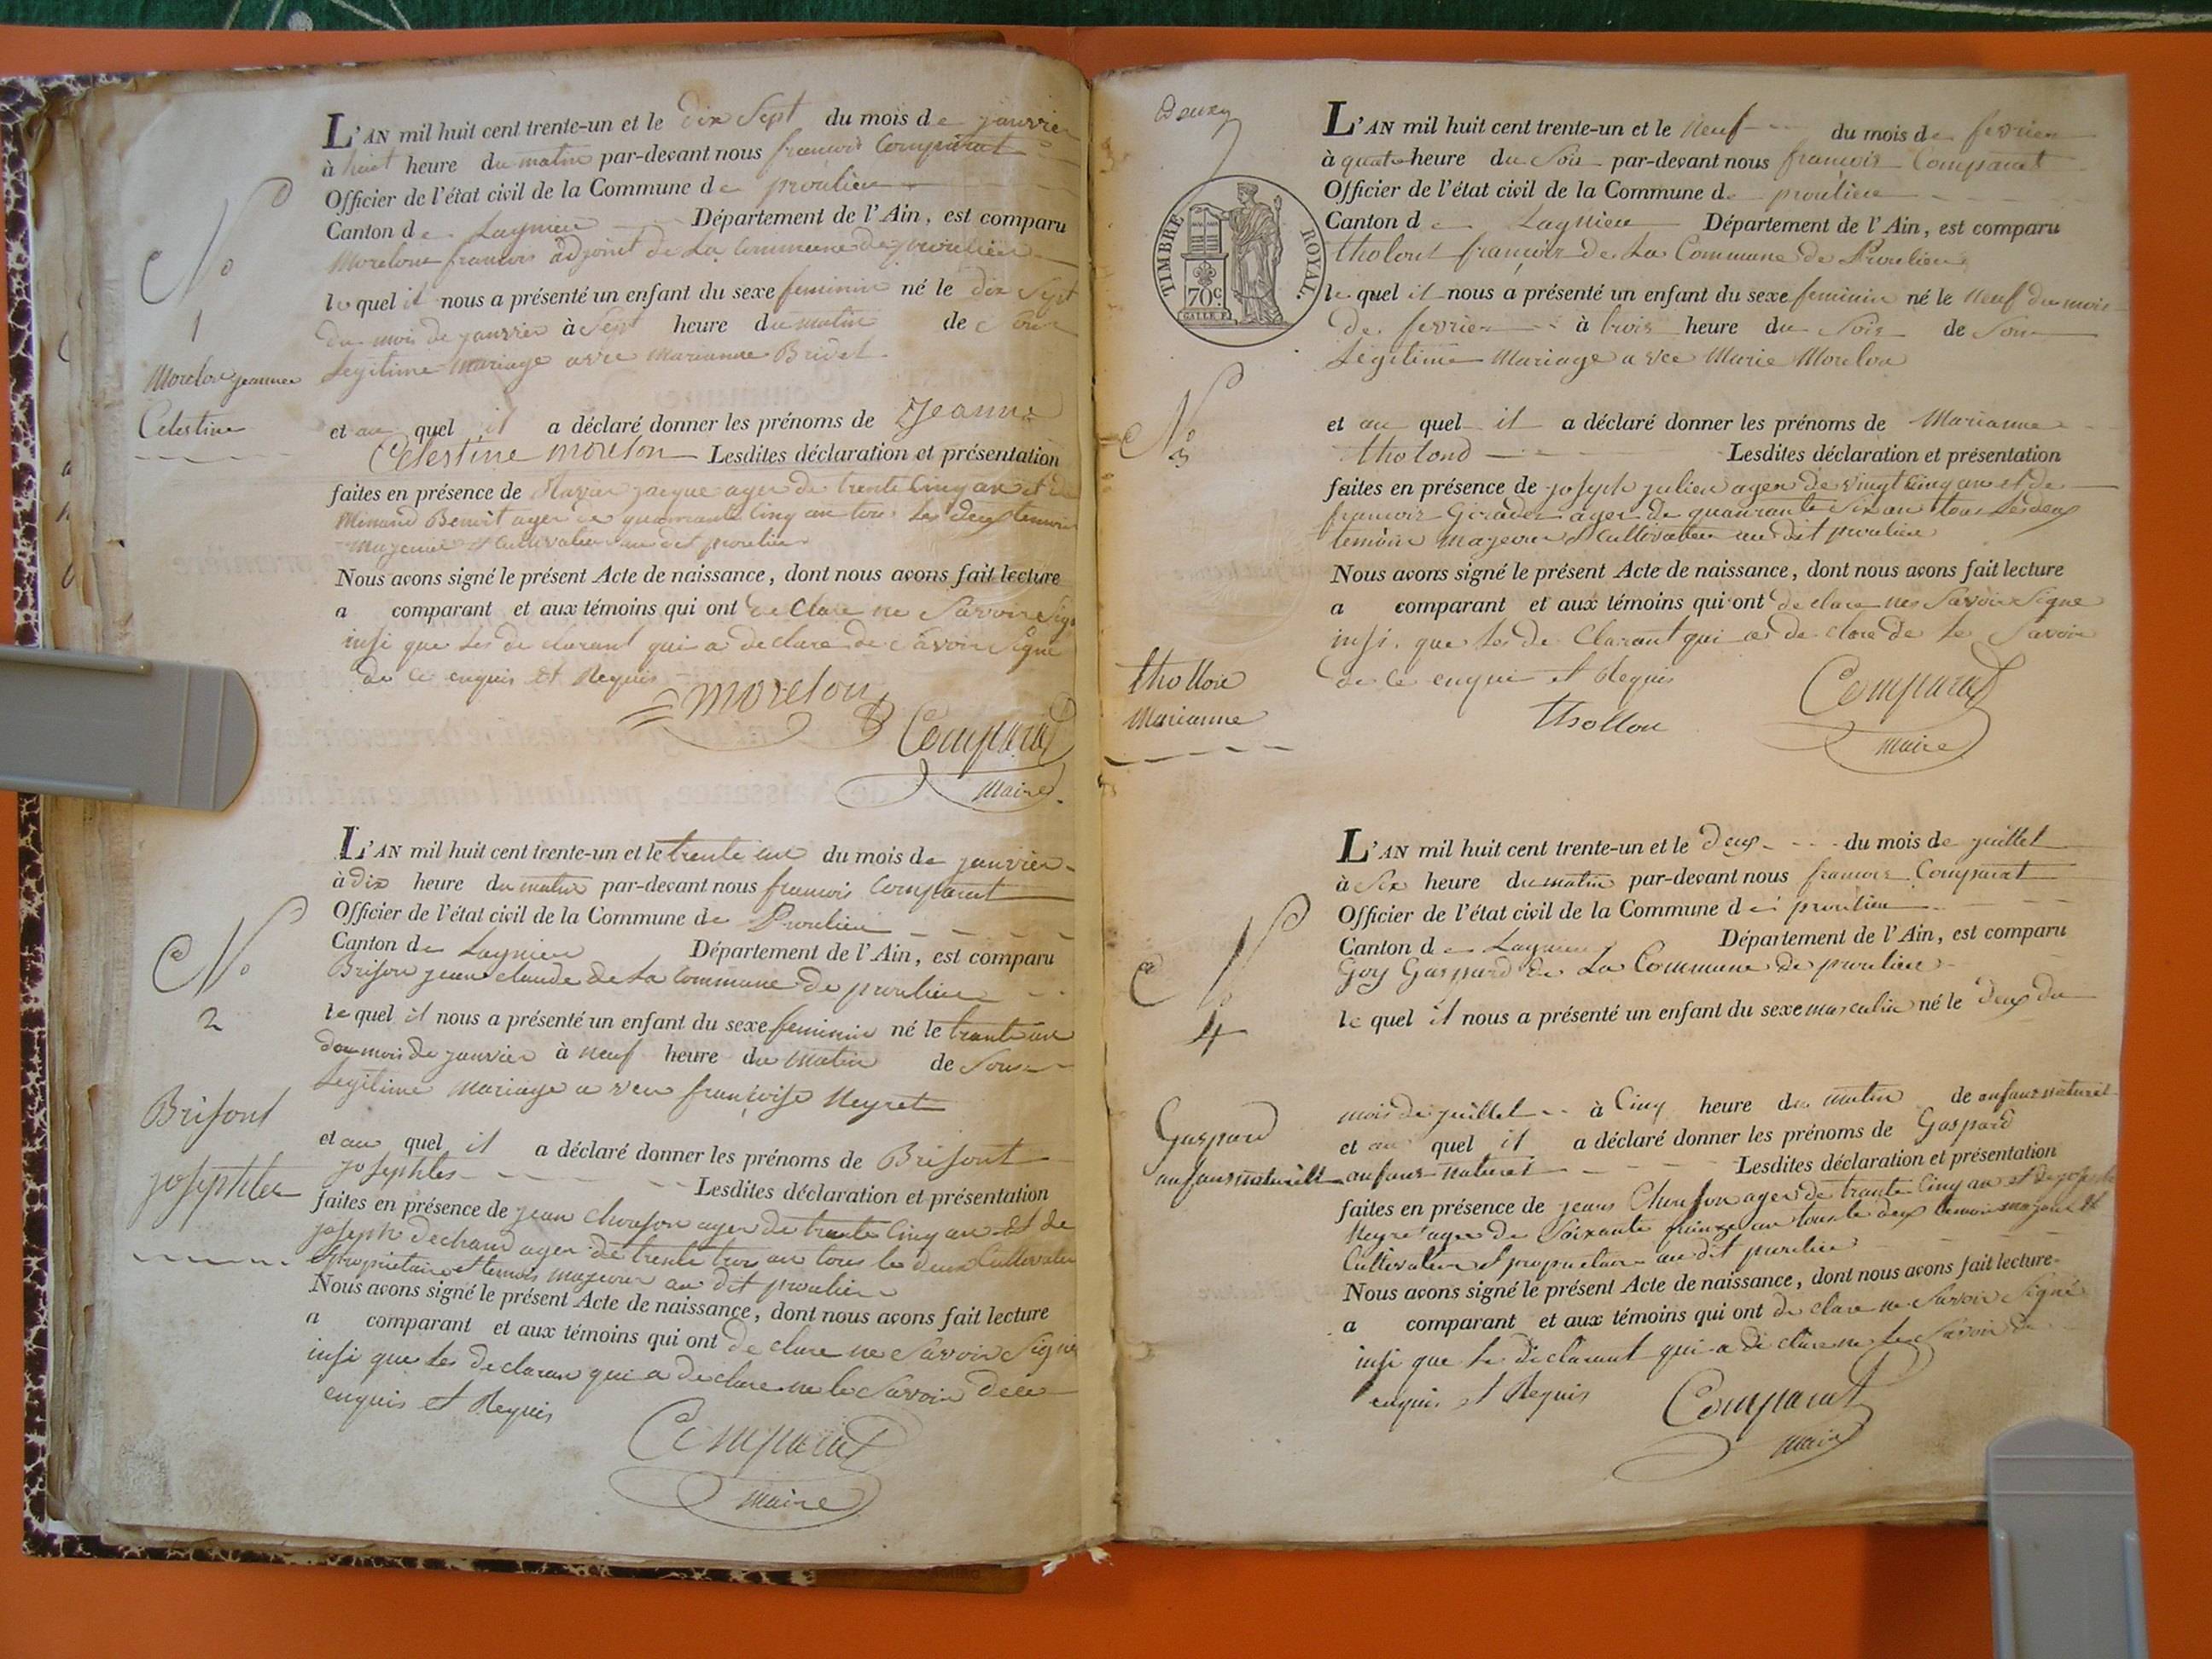 L'AN mil huit cent trente-un et le dix Sept du mois de janvier
à huit heure du matin par-devant nous francois Comparat
Officier de l'état civil de la Commune de proulieu
Canton de Lagnieu Département de l'Ain, est comparu
Morelon francois adjoint de La Commune de proulieu
le quel il nous a présenté un enfant du sexe feminin né le dix Sept
du mois de janvier à Sept heure du matin de Son
Legitime mariage avec Marianne Bridet
N°
1
Morelon jeanne
Celestine
et au quel il a déclaré donner les prénoms de Jeanne
Celestine morelon Lesdites déclaration et présentation
faites en présence de jacque ager de trente Cinq an et de
Minand Benoit ager de quarante Cinq an tous Les deux temoin
majeur et Cultivateur au dit proulieu
Nous avons signé le présent Acte de naissance, dont nous avons fait lecture
a comparant et aux témoins qui ont de Clare ne Savoir Signe
insi que Les de clarant qui a de clare de Savoir Signé
de ce enquis et Requis
morelon
Comparat
Maire
L'AN mil huit cent trente-un et le trente un du mois de janvier
à dix heure du matin par-devant nous francois Comparat
Officier de l'état civil de la Commune de Proulieu
Canton de Lagnieu Département de l'Ain, est comparu
Brison jean claude de La Commune de proulieu
le quel il nous a présenté un enfant du sexe feminin né le trante un
dou mois de janvier à neuf heure du matin de Son
Legitime mariage a vec françoise Neyret
N°
2
Brisont
josephtes
et au quel il a déclaré donner les prénoms de Brisont
josephtes Lesdites déclaration et présentation
faites en présence de jean ager de trante Cinq an Et de
joseph dechaud ager de trente trois an tous le deux Cultivateur
Et propriétaire et temois majeour au dit proulieu
Nous avons signé le présent Acte de naissance, dont nous avons fait lecture
a comparant et aux témoins qui ont de clare ne Savoir Signe
insi que Les declarant qui a de clare ne le Savoir de ce
enquis et Requis
Comparat
maire
TIMBRE ROYAL.
70c
L'AN mil huit cent trente-un et le Neuf du mois de fevrier
à quatre heure du Soir par-devant nous francois Comparat
Officier de l'état civil de la Commune de proulieu
Canton de Lagnieu Département de l'Ain, est comparu
tholont françois de La Commune de Proulieu
le quel il nous a présenté un enfant du sexe feminin né le Neuf du mois
de fevrier à trois heure du Soir de Son
Legitime Mariage a vec Marie Morelon
N°
3
et au quel il a déclaré donner les prénoms de Marianne
tholond Lesdites déclaration et présentation
faites en présence de joseph julien ager de vingt Cinq an et de
francois ager de quaurante Six an tous Les deux
temoin majeour et Cultivateur au dit proulieu
Nous avons signé le présent Acte de naissance, dont nous avons fait lecture
a comparant et aux témoins qui ont de clare nes Savoir Signe
insi que Les de Clarant qui a de clare de Le Savoir
de Ce enqui et Requis
thollon
Marianne
thollon
Comparat
maire
L'AN mil huit cent trente-un et le Deux du mois de juillet
à Six heure du matin par-devant nous francois Comparat
Officier de l'état civil de la Commune de proulieu
Canton de Lagnieu Département de l'Ain, est comparu
Goy Gaspard de La Commune de proulieu
le quel il nous a présenté un enfant du sexe masculin né le deux du
N°
4
mois de juillet à Cinq heure du matin de anfans naturel
et au quel il a déclaré donner les prénoms de Gaspard
anfans naturel Lesdites déclaration et présentation
Gaspard
anfans naturelt
faites en présence de jean ager de trante Cinq an et de joseph
Neyret ager de Soixante quinze an tous le deux temoin majeur Et
Cultivateur et propriétaire au dit proulieu
Nous avons signé le présent Acte de naissance, dont nous avons fait lecture
a comparant et aux témoins qui ont de clare ne Savoir Signé
insi que Le declarant qui a de clare ne Le Savoir de
enquis et Requis
Comparat
maire